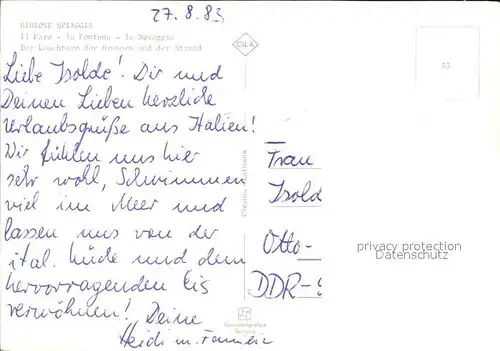 27.8.83
BIBIONE SPIAGGIA
Il Faro - la Fontana - la Spiaggia
Der Leuchturm der Brunnen und der Strand
CILA
53
Liebe Isolde! Dir und
Deinen Lieben herzliche
Urlaubsgrüße aus Italien!
Wir fühlen uns hier
sehr wohl, Schwimmen
viel im Meer und
lassen uns von der
ital. Küche und dem
hervorragenden Eis
verwöhnen! Deine
Heidi m. Familie
Frau
Isold
Otto-
DDR-
privacy protection
Datenschutz